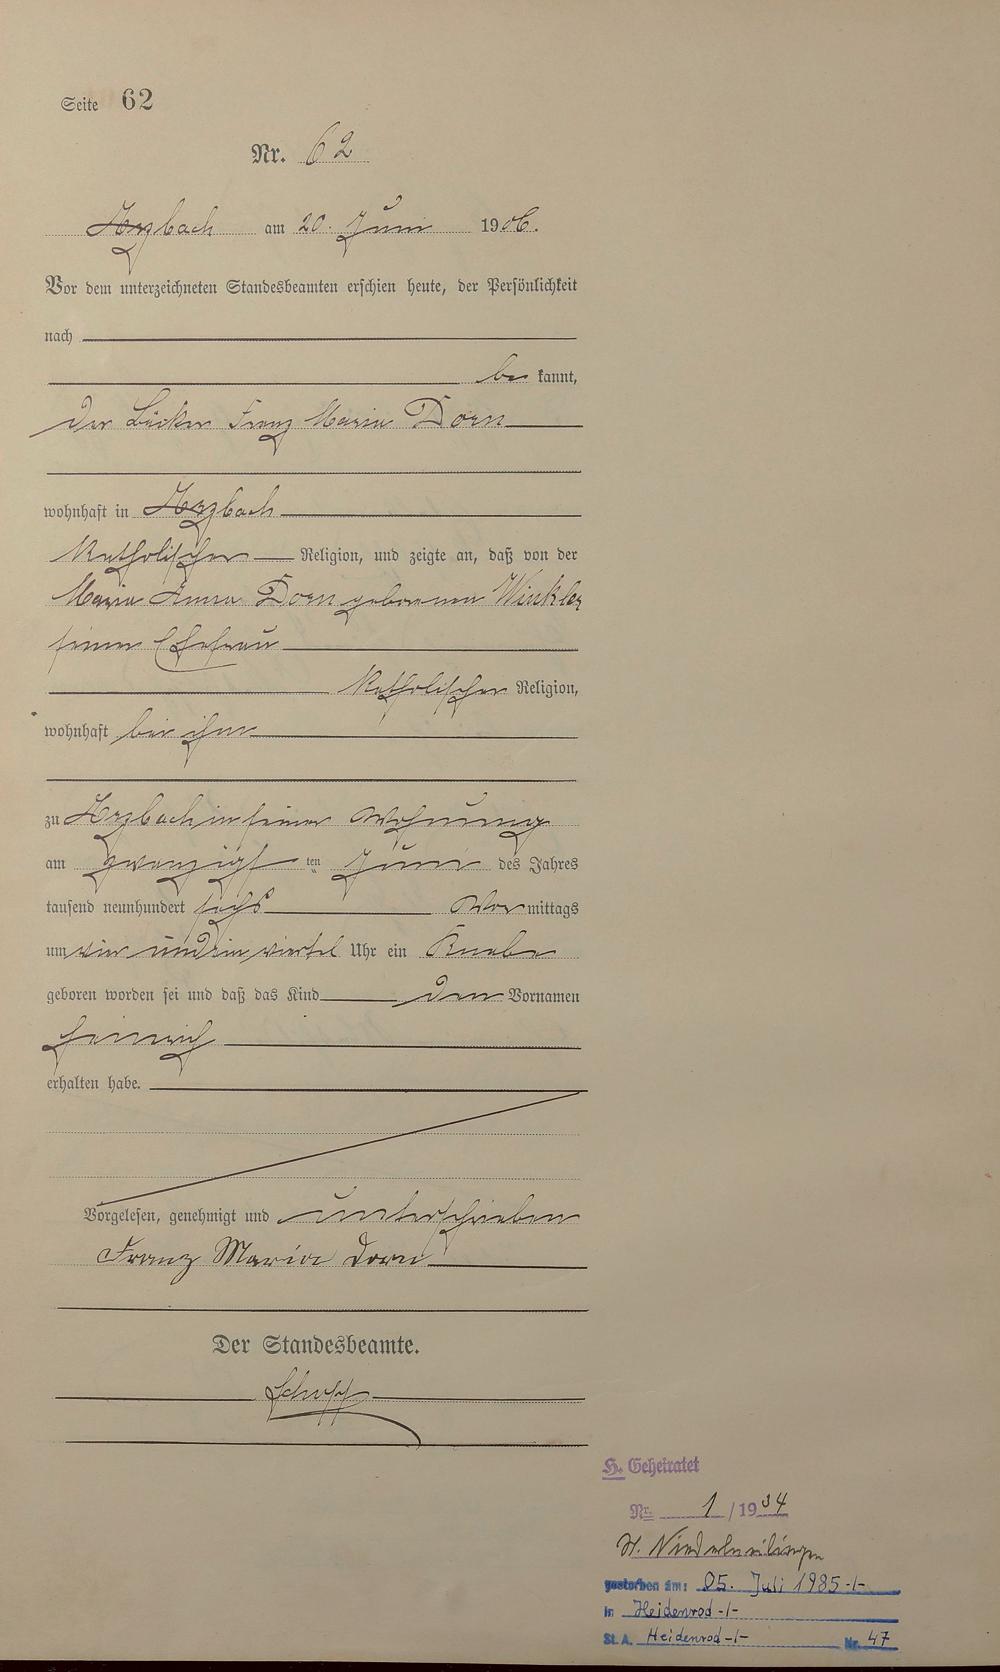 Seite 62
Nr. 62
Herzbach am 20. Juni 1906.
Vor dem unterzeichneten Standesbeamten erschien heute, der Persönlichkeit
nach
be kannt,
der Bäcker Franz Maria Dorn
wohnhaft in
Katholischer Religion, und zeigte an, daß von der
Maria Anna Dorn geborenen Winkler
seiner Ehefrau
Katholischer Religion,
wohnhaft bei ihm
zu in seiner Wohnung
am zwanzigsten Juni des Jahres
tausend neunhundert sechs Vor mittags
um vier und ein viertel Uhr ein Knabe
geboren worden sei und daß das Kind den Vornamen
Heinrich
erhalten habe.
Vorgelesen, genehmigt und unterschrieben
Franz Maria Dorn
Der Standesbeamte.
H. Geheiratet
Nr. 1/1934
St.
gestorben am: 05. Juli 1985 -/-
in Heidenrod -/-
St. A. Heidenrod -/- Nr. 47